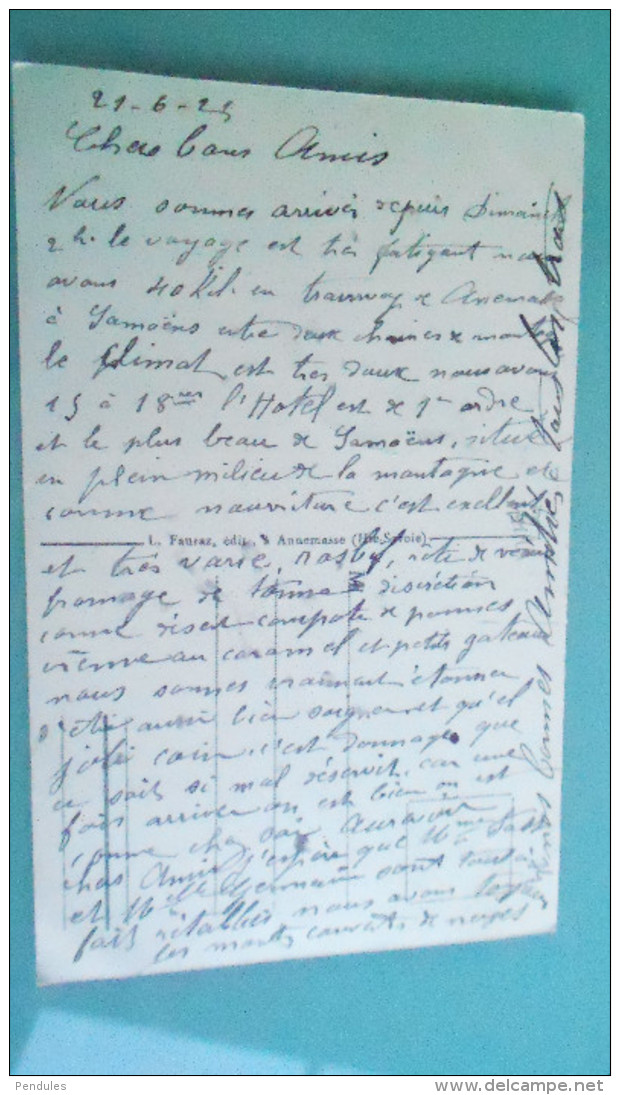 21-6-25
Chers bons Amis
Nous sommes arrivés depuis Dimanche
2h. le voyage est très fatigant nous
avons 40 kil. en tramway de Anemasse
à Samoëns entre deux chaines de montag
le Climat est très doux nous avons
15 à 18 l'Hotel est de 1er ordre
et le plus beau de Samoëns, situé
en plein milieu de la montagne et
comme nourriture c'est exellent
L. Fauraz, édit., Annemasse (Hte-Savoie)
et très varie, rosbif, rote de veau
fromage de tomme discrétion
comme désert compote de pommes
crème au caramel et petits gateaux
nous sommes vraiment étonner
d'etre aussi bien soigner et qu'el
joli coin, c'est dommage que
ce soit si mal déservit. car une
fois arriver on est bien on est
comme chez soi Aurevoir
chers Amis j'espère que Mme
et Melle Germaine sont tout à
fait rétablies nous avons toujours
les monts couverts de neiges
bonnes Amitiés à tous
Pendules
delcampe.net